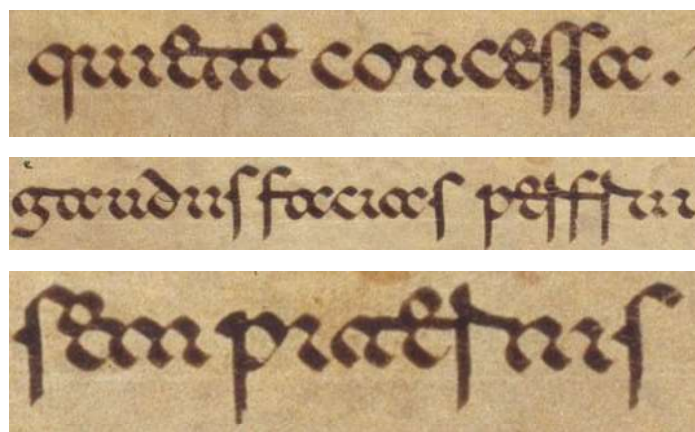 quiete concessa.
gaudiis facias perfrui
sempiternis